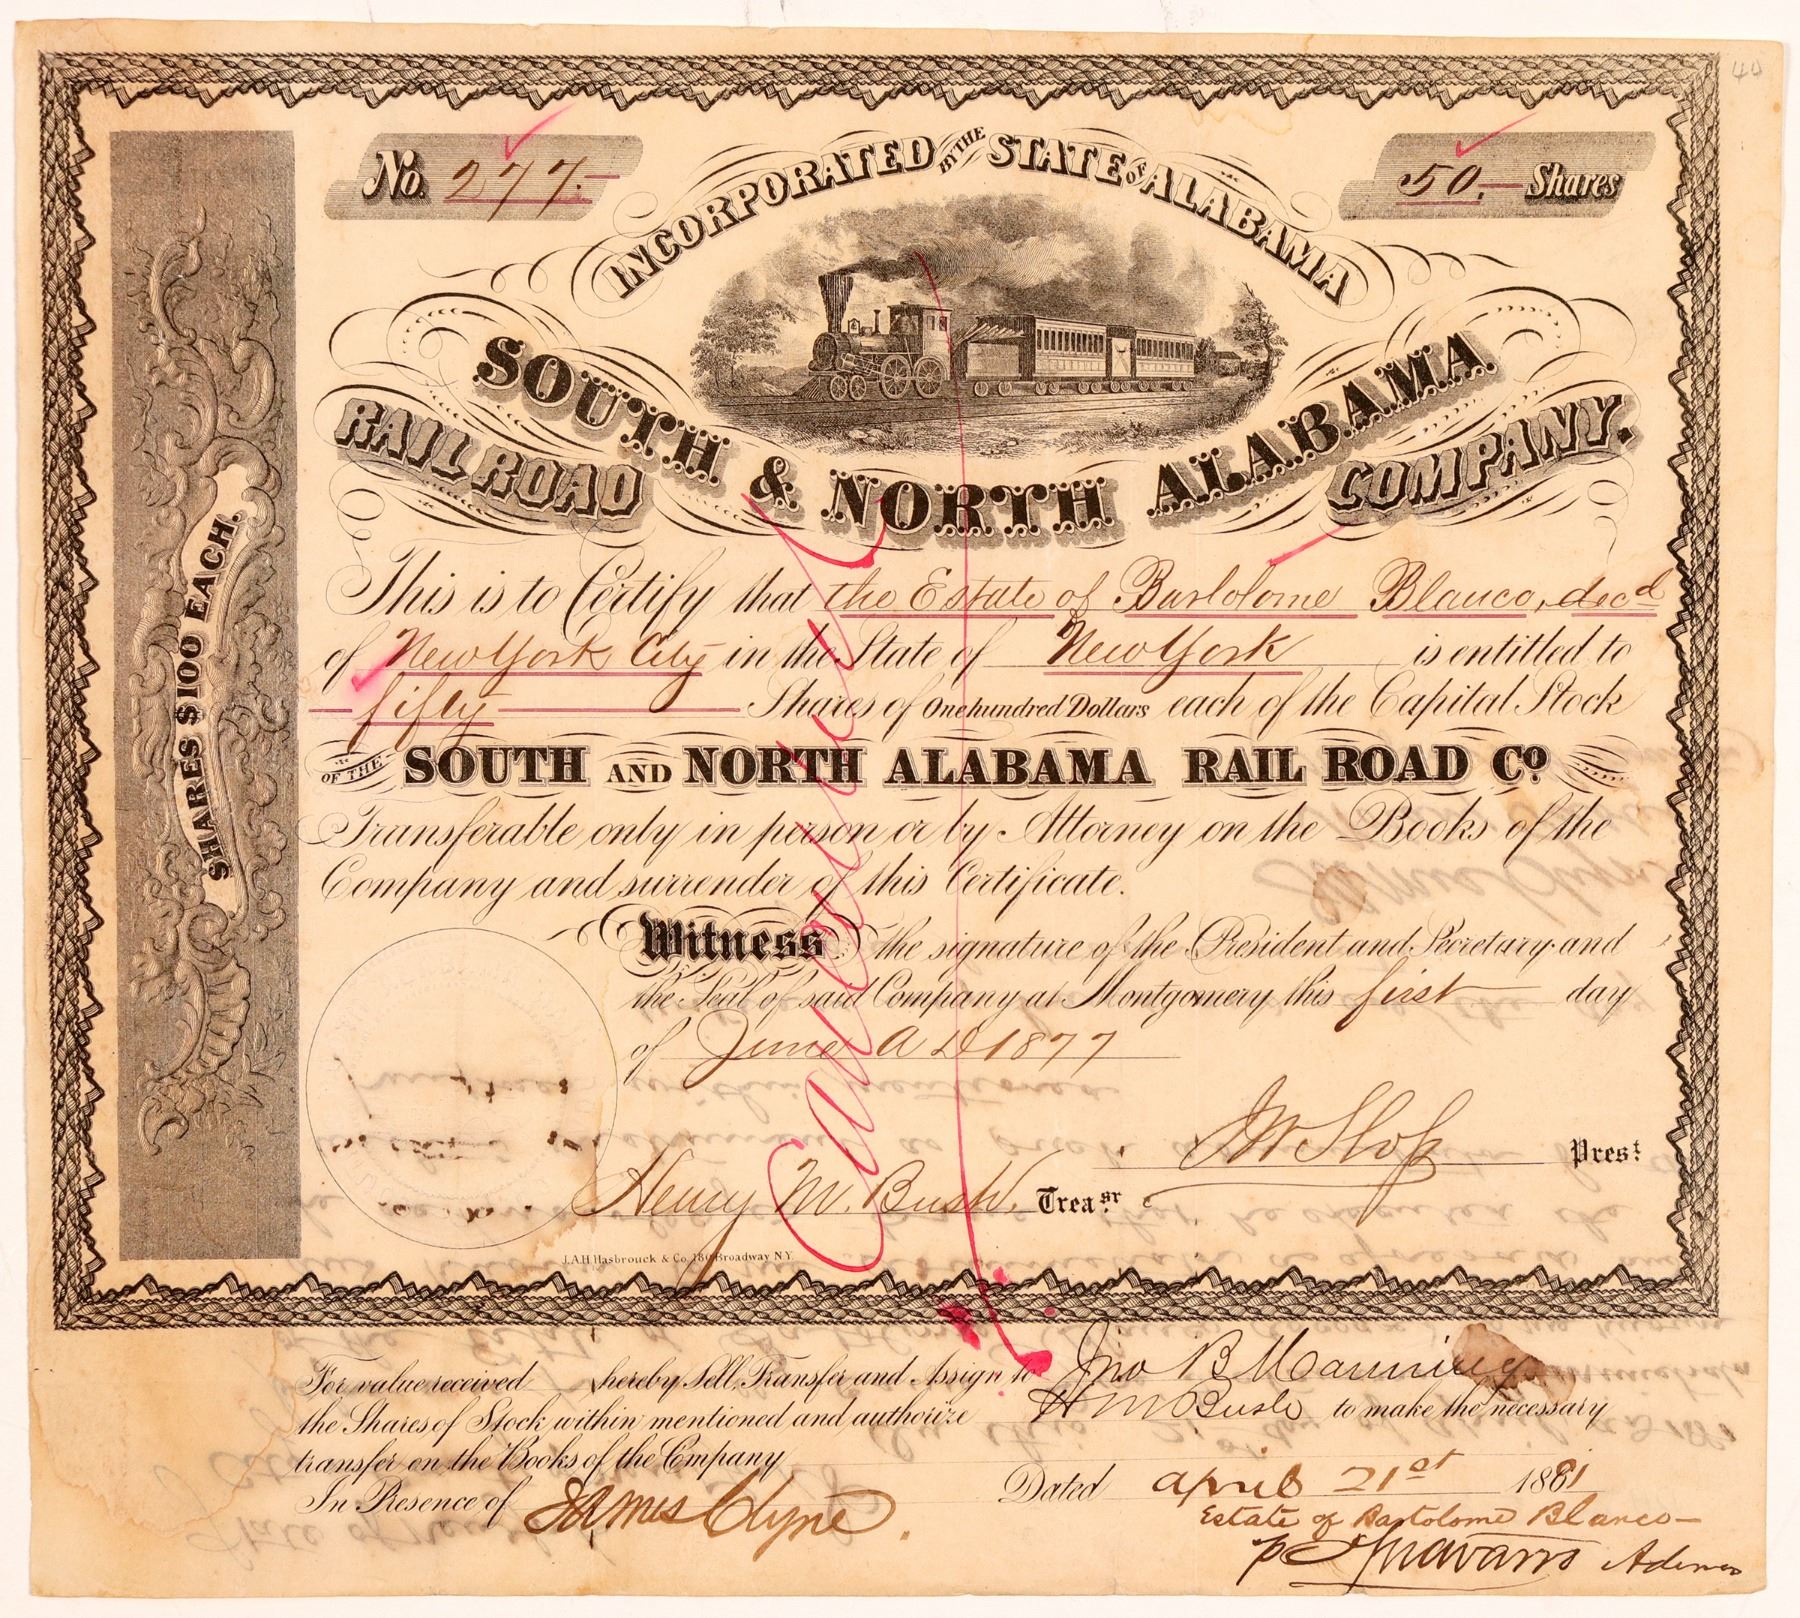 44
No. 277.
50. Shares
INCORPORATED BY THE STATE OF ALABAMA
SOUTH & NORTH ALABAMA
RAIL ROAD COMPANY.
SHARES $100 EACH.
This is to Certify that the Estate of Bartolome Blanco, decd
of New York City in the State of New York is entitled to
fifty Shares of One hundred Dollars each of the Capital Stock
OF THE SOUTH AND NORTH ALABAMA RAIL ROAD Co.
Transferable only in person or by Attorney on the Books of the
Company and surrender of this Certificate.
Cancelled
Witness the signature of the President and Secretary and
the Seal of said Company at Montgomery this first day
of June A D 1877
Prest
Henry M. Bush. Treasr
J.A.H Hasbrouck & Co. 180 Broadway N.Y.
For value received hereby Sell, Transfer and Assign to Jno B Manning
the Shares of Stock within mentioned and authorize H M Bush to make the necessary
transfer on the Books of the Company
Dated april 21st 1881
In Presence of James Clyne.
Estate of Bartolome Blanco